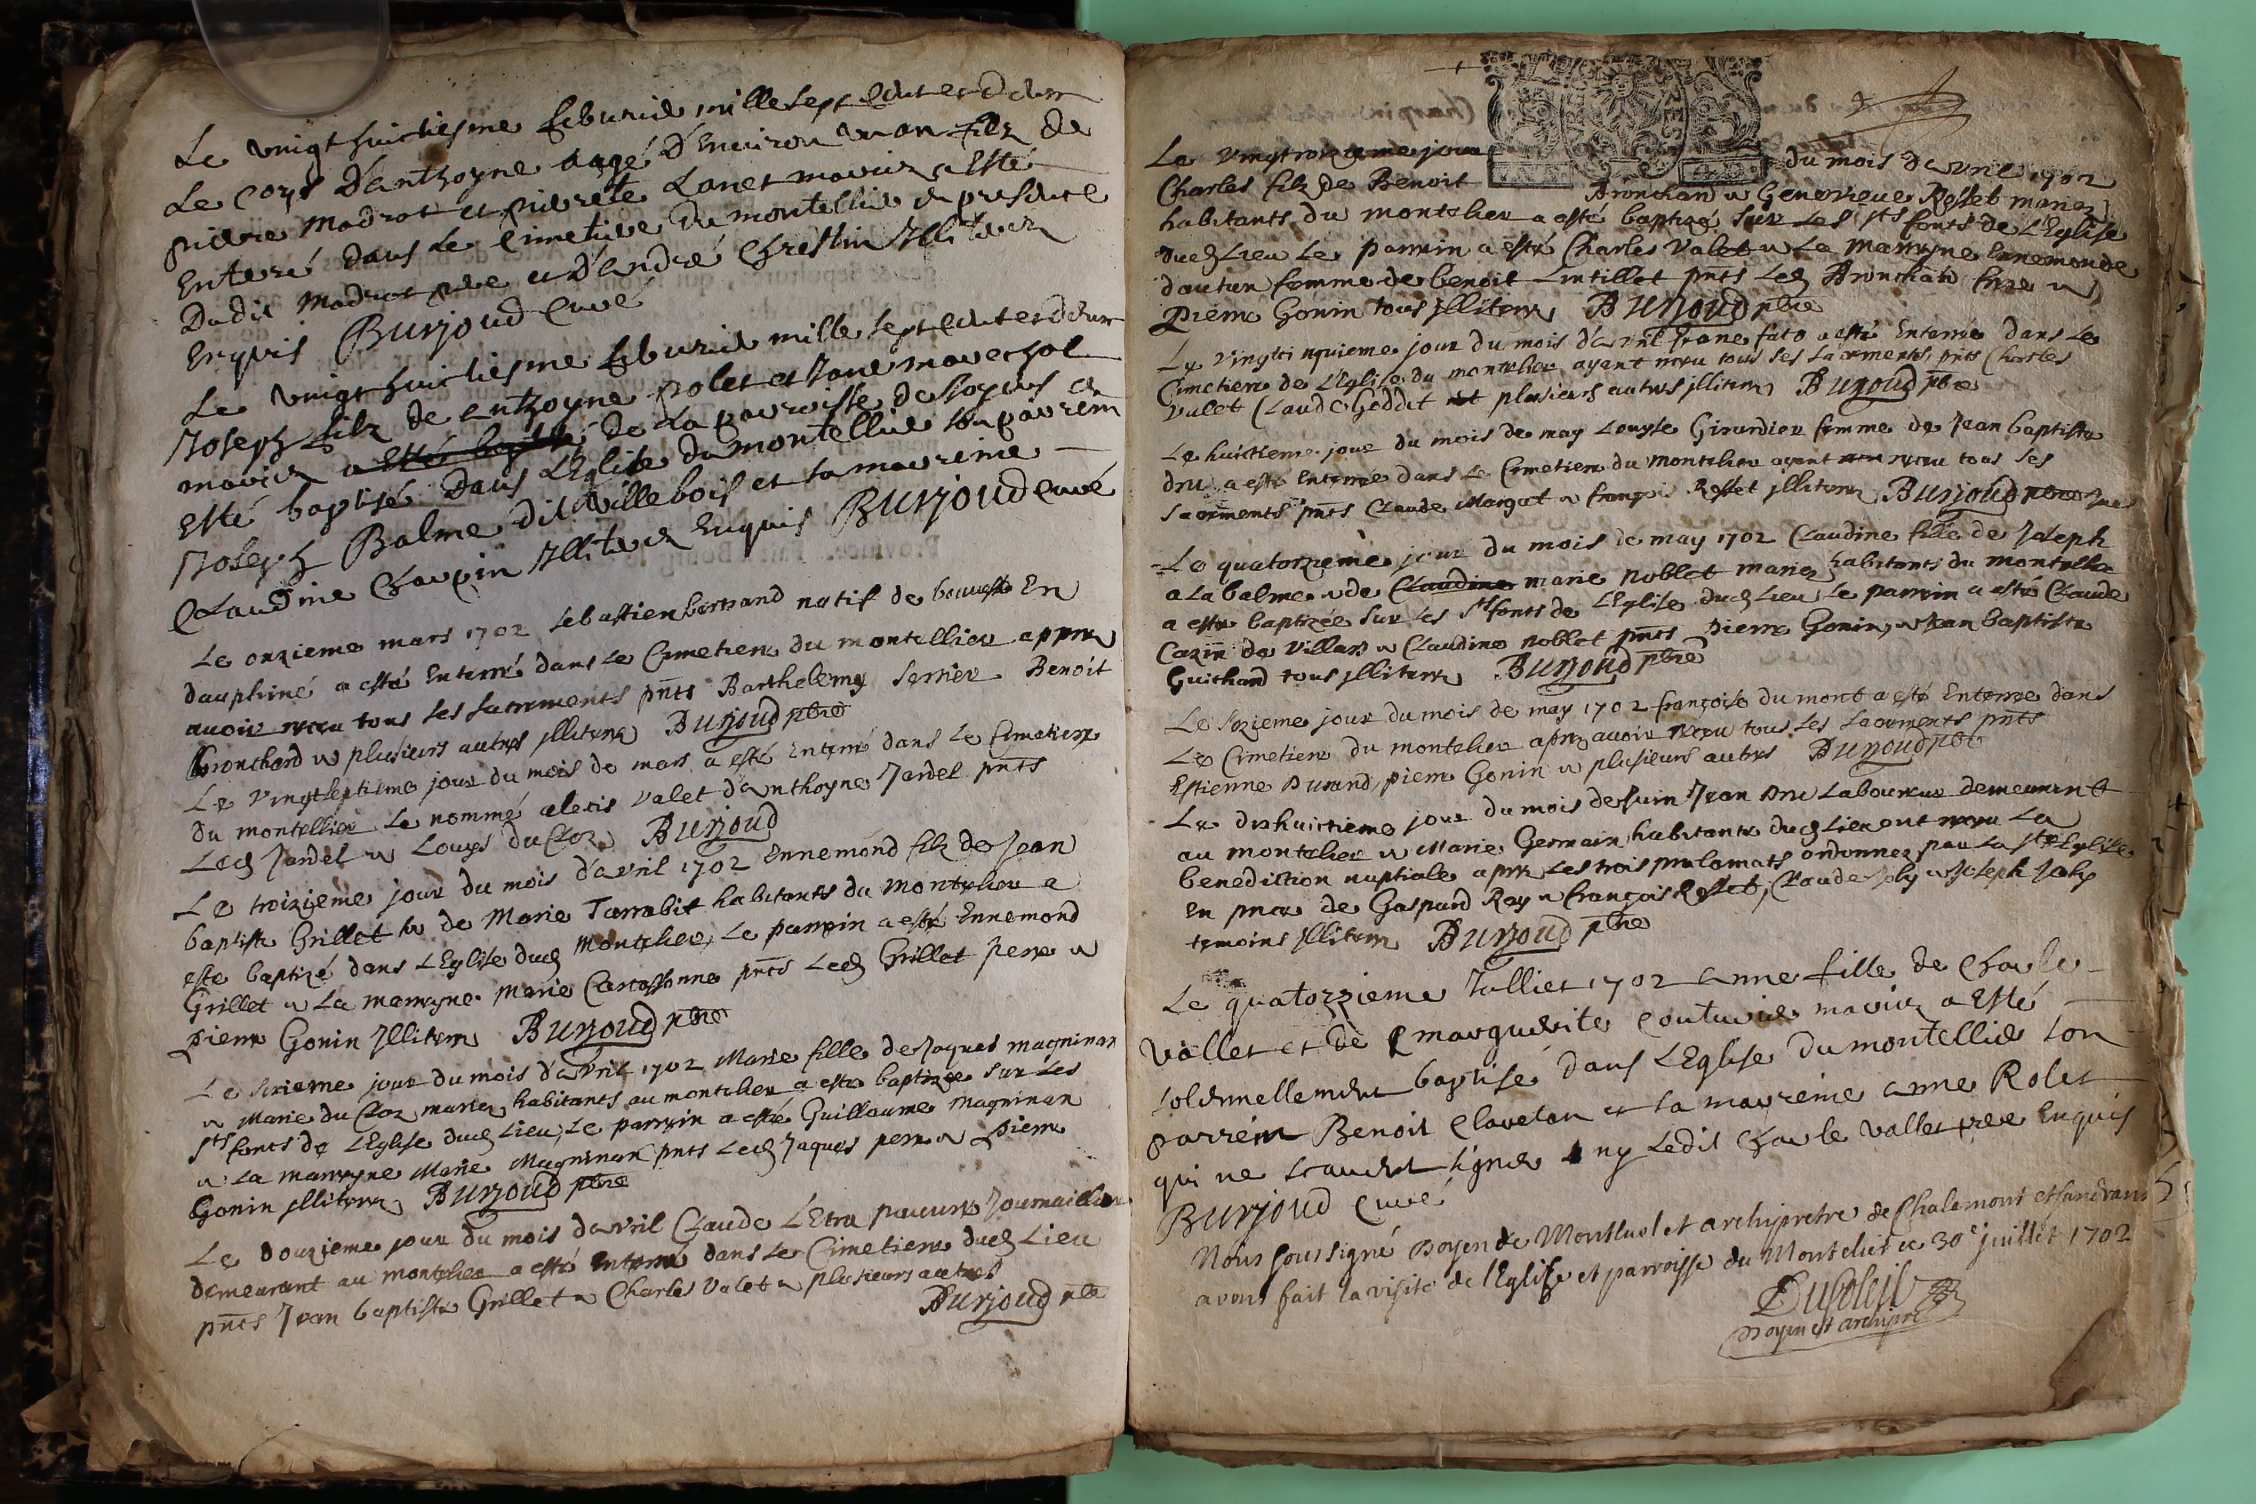 Le vingt huictiesme feburier mille sept cent et deux
Le corps d'anthoyne aagé d'Environ un an filz de
pierre Madrot et pierrete Lanet mariez a Esté
Enterré dans le Cimetiere du montellier en presence
Dudit Madrot pere et d'André Chrestin Illiterez
Enquis Burjoud Curé
Le vingt huictiesme feburier mille sept cent et deux
Joseph filz de enthoyne polet et Jane marechal
mariez a Esté de La parroisse de
Esté baptisé dans L'Eglise du montellier son parrein
Joseph Balme dit Villebois et sa marreine
Claudine Charpin Illiterez Enquis Burjoud curé
Le onzieme mars 1702 Sebastien bertrand natif de En
dauphiné a esté Enterré dans Le Cimetiere du montellier apprez
avoir receu tous ses sacrements pnts Barthelemy Serrier Benoit
Bronchard & plusieurs autres jlliterez Burjoud pbre
Le vingtseptieme jour du mois de mars a esté Enterré dans Le Cimetiere
du montellier Le nommé alexis Valet d'anthoyne Jardel pnts
Led Jardel & Louys du Cloz Burjoud
Le troizieme jour du mois d'avril 1702 Ennemond filz de Jean
baptiste Grillet & de Marie Tarrabit habitants du Montelier a
esté baptizé dans L'Eglise dud Montelier, Le parrein a esté Ennemond
Grillet & La marreyne Marie Carcassonne pnts Led Grillet pere &
pierre Gonin Jlliterez Burjoud pbre
Le sixieme jour du mois d'avril 1702 Marie fille de Jaques magninan
& Marie du Cloz mariez habitants au montelier a esté baptizée sur Les
sts fonts de L'Eglise dud Lieu, Le parrein a esté Guillaume magninan
& La marreyne Marie Magninan pnts Led Jaques pere & pierre
Gonin jlliterez Burjoud pbre
Le douzieme jour du mois d'avril Claude L'Etra pauvre Journaillier
demeurant au montelier a esté enterré dans Le Cimetiere dud Lieu
pnts Jean baptiste Grillet & Charles Valet & plusieurs autres
Burjoud pbre
Le vingtroizieme jour du mois d'avril 1702
Charles filz de Benoit Bronchard & Genevieve Rosset mariez
habitants du montelier a esté baptizé sur Les sts fonts de L'Eglise
dud Lieu Le parrein a esté Charles Valet & La marreyne Ennemonde
dautun femme de benoit Lintillet pnts Led Bronchard &
pierre Gonin tous jlliterez Burjoud pbre
Le vingtcinquieme jour du mois d'avril a esté Enterré dans Le
Cimetiere de L'Eglise du montelier ayant receu tous ses sacrements pnts Charles
Valet Claude Geddet & plusieurs autres jlliterez Burjoud pbre
Le huictieme jour du mois de may Louyse Girardier femme de Jean baptiste
dru a esté Enterrée dans Le Cimetiere du montelier ayant receu tous ses
sacrements pnts Claude Margot & françois Rosset jlliterez Burjoud pbre
Le quatorzieme jour du mois de may 1702 Claudine fille de Joseph
a La balme & de Claudine marie noblet mariez habitants du montelier
a esté baptizée sur Les sts fonts de L'Eglise dud Lieu, Le parrein a esté Claude
Cazin de Villars & Claudine noblet pnts pierre Gonin, & Jean baptiste
Guichard tous jlliterez Burjoud pbre
Le sezieme jour du mois de may 1702 françoise du mont a esté Enterrée dans
Le Cimetiere du montelier aprez avoir receu tous ses sacrements pnts
Estienne Durand, pierre Gonin & plusieurs autres Burjoud pbre
Le dixhuictieme jour du mois de Juin Jean Dru Laboureur demeurant
au montelier & Marie Germain habitante dud Lieu ont receu La
benediction nuptiale aprez Les trois proclamats ordonnez par La ste Eglise
En pnce de Gaspard Rey & françois Rosset, Claude Joly & Joseph Joly
temoins jlliterez Burjoud pbre
Le quatorzzieme Jullier 1702 anne fille de Charle
Vallet et de marguerite Couturier mariez a Esté
solennellement baptisé dans L'Eglise du montellier son
parrein Benoit Clavelan et sa marreine anne Rolet
qui ne scavent signer ny Ledit Charle Vallet pere Enquis
Burjoud Curé
Nous soussigné Doyen de Montluel et archiprestre de Chalamont et sandrans
avons fait la visite de l'Eglise et parroisse du Montelier ce 30e juillet 1702
Dusoleil
Doyen et archipre